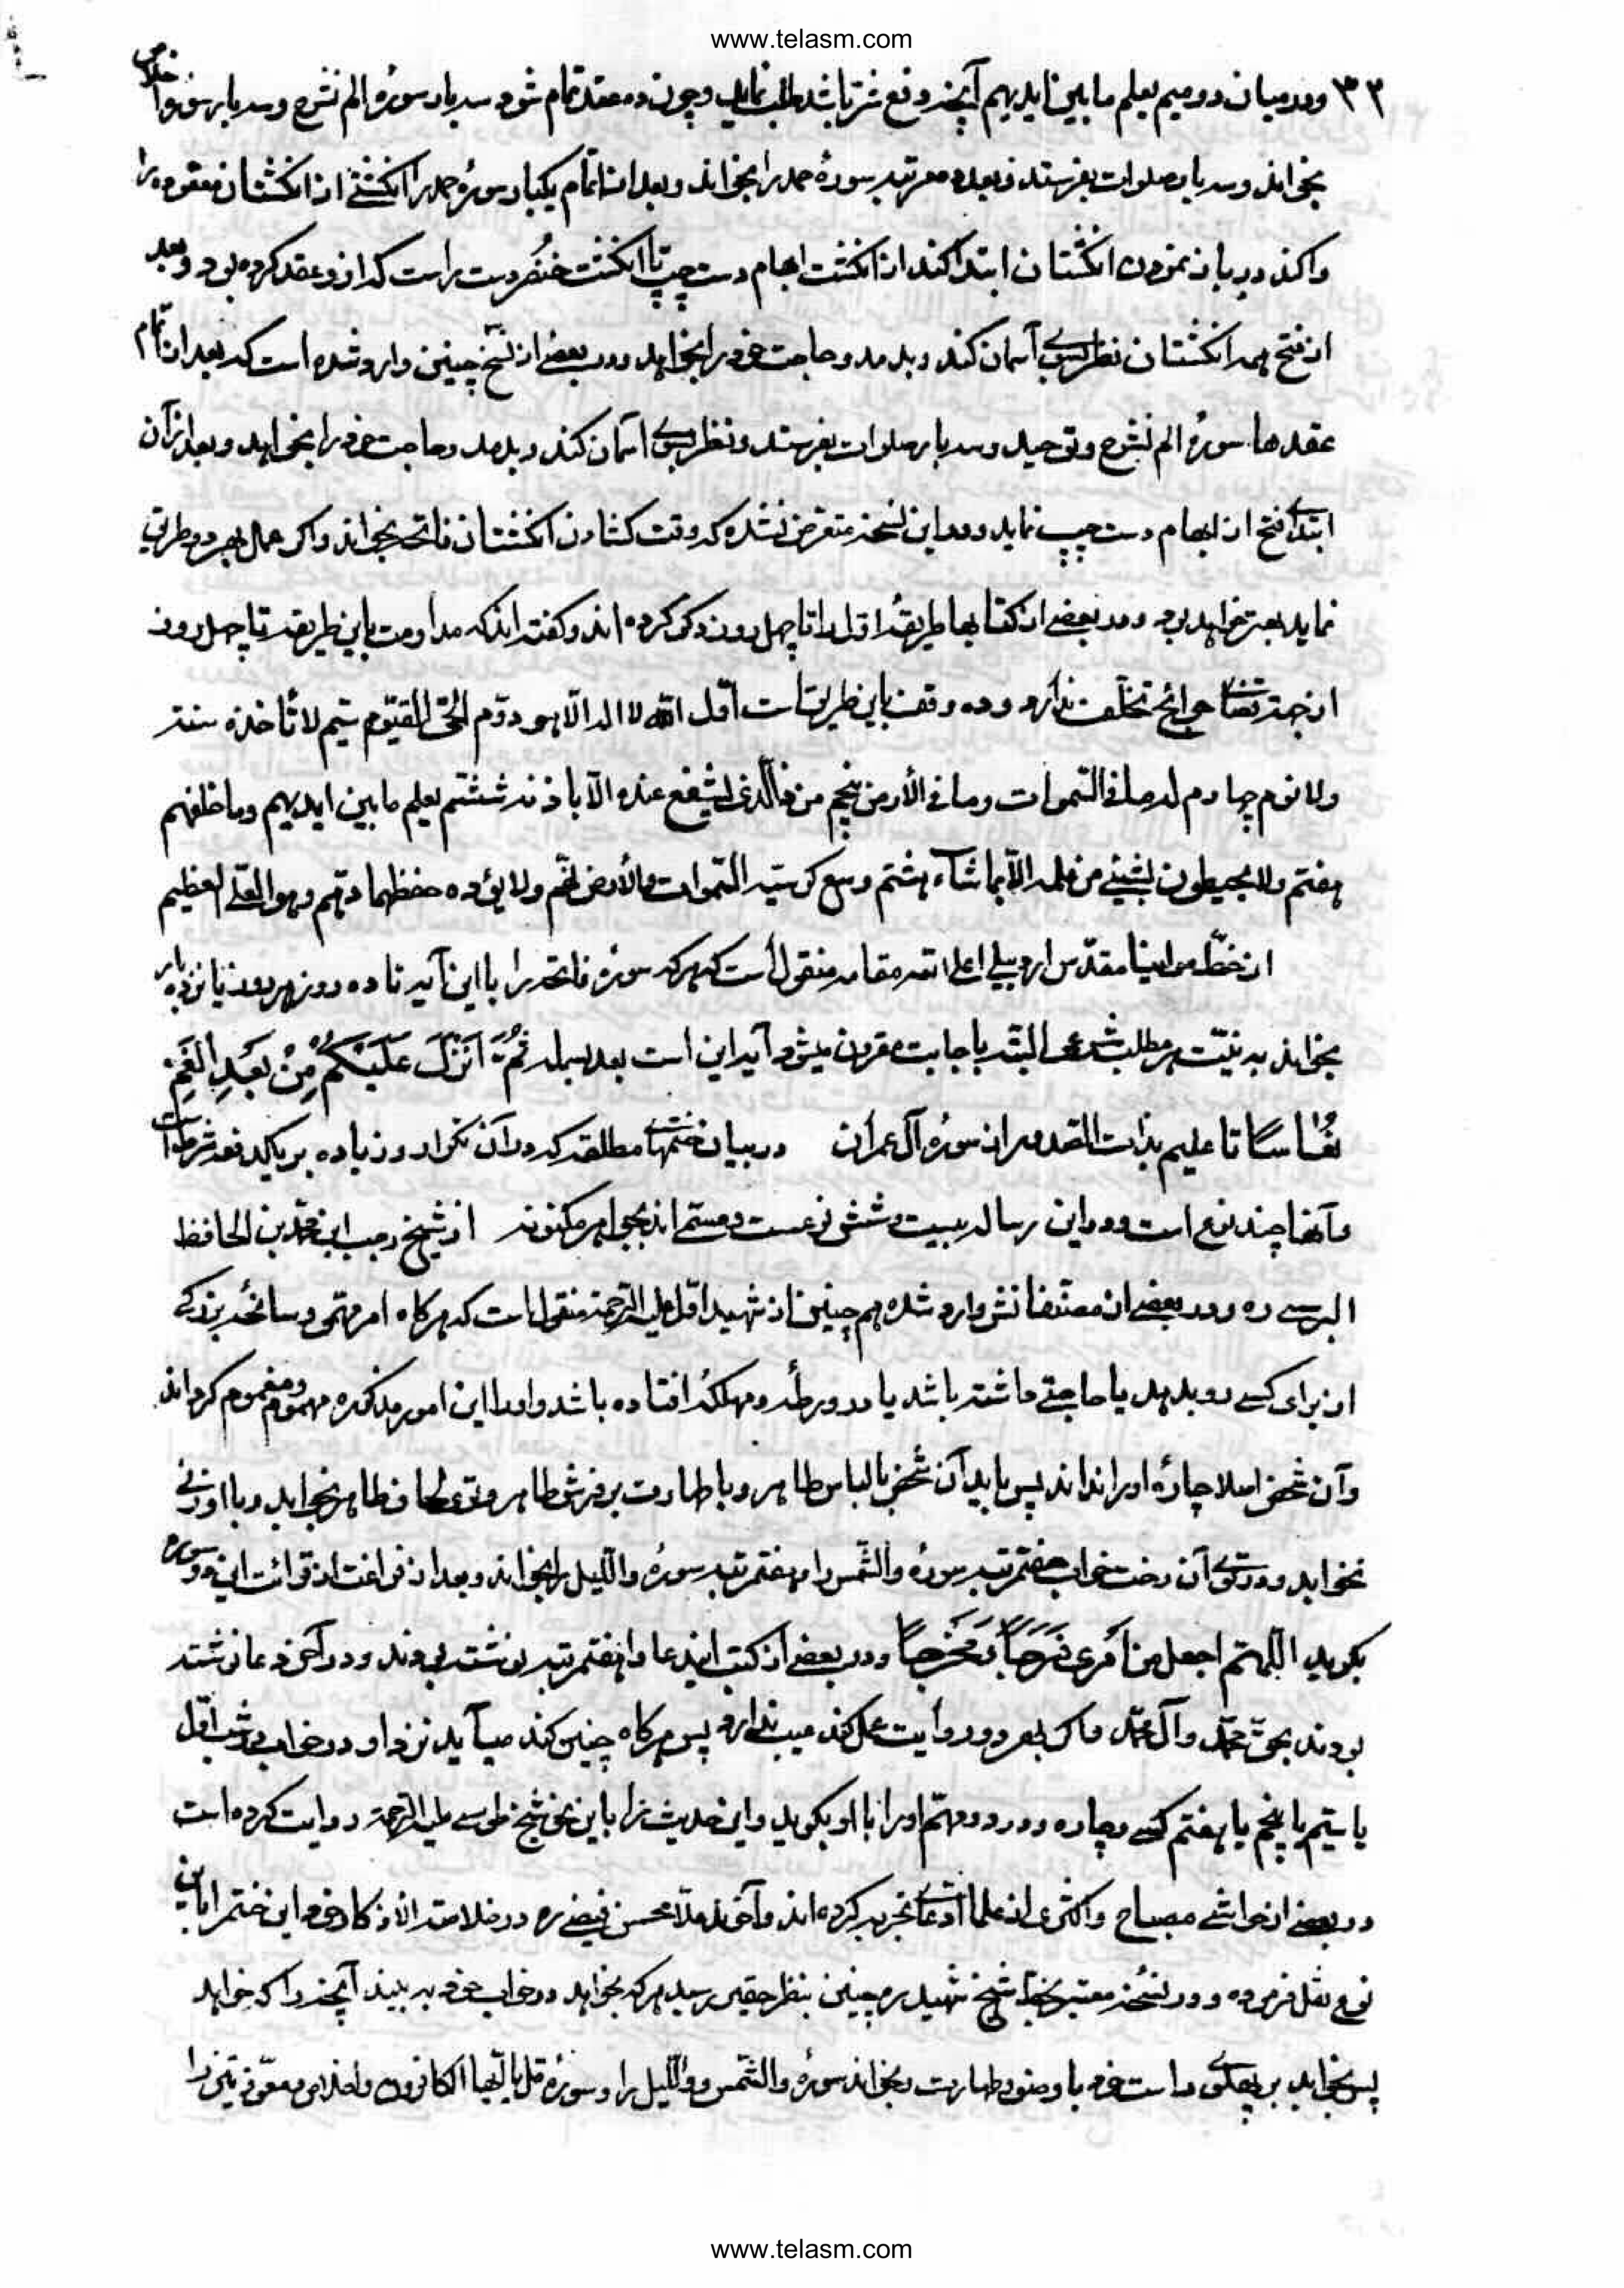 www.telasm.com
۳۳ و در میان دو میم یعلم ما بین ایدیهم آنچه دفع شر باشد طلب نماید و چون ده عقد تمام شود سه بار سوره الم نشرح و سه بار سوره اخلاص
بخواند و سه بار صلوات بفرستد و بعد ده مرتبه سورهٔ حمد را بخواند و بعد از اتمام یکبار سورهٔ حمد را انگشتی از انگشتان معقوده را
وا کند و در باز نمودن انگشتان ابتدا کند از انگشت ابهام دست چپ تا انگشت خنصر دست راست که از او عقد کرده بود و بعد
از فتح همه انگشتان نظر بسوی آسمان کند و بدمد و حاجت خود را بخواهد و در بعضی از نسخ چنین وارد شده است که بعد از تمام
عقدها سورهٔ الم نشرح و توحید و سه بار صلوات بفرستد و نظر بسوی آسمان کند و بدمد و حاجت خود را بخواهد و بعد از آن
ابتدای فتح از ابهام دست چپ نماید و در این نسخه متعرض نشده که وقت گشادن انگشتان فاتحه بخواند و اگر عمل بهر دو طریق
نماید بهتر خواهد بود و در بعضی از کتابها طریقهٔ اول را تا چهل روز ذکر کرده اند و گفته اند که مداومت باین طریقه تا چهل روز
از جهة قضای حوائج تخلف ندارد و ده وقف باین طریق است اول الله لا اله الا هو دوم الحی القیوم سیم لا تأخذه سنة
ولا نوم چهارم له ما فی السموات و ما فی الأرض پنجم من ذا الذی یشفع عنده الا باذنه ششم یعلم ما بین ایدیهم وما خلفهم
هفتم ولا یحیطون بشیئ من علمه الا بما شاء هشتم وسع کرسیه السموات والأرض نهم ولا یؤده حفظهما دهم وهو العلی العظیم
از خط مولینا مقدس اردبیلی اعلا الله مقامه منقول است که هر که سورهٔ فاتحه را با این آیه تا ده روز هر روز پانزده بار
بخواند به نیت هر مطلب شرعی البته باجابت مقرون میشود آیه این است بعد بسمله ثُمَّ اَنْزَلَ عَلَیْکُمْ مِنْ بَعْدِ الْغَمِّ
نُعاسًا تا علیم بذات الصدور از سورهٔ آل عمران در بیان ختمهای مطلقه که در آن تکرار و زیاده بر یکدفعه شرط است
و آنها چند نوع است و در این رساله بیست و شش نوعست و مستم اند بجواهر مکنونه از شیخ رجب ابن محمد بن الحافظ
البرسی ره و در بعضی از مصنفاتش وارد شده هم چنین از شهید اول علیه الرحمة منقول است که هر گاه امر مهمی و سانحهٔ بزرگی
از برای کسی رو بدهد یا حاجتی داشته باشد یا در ورطه و مهلکهٔ افتاده باشد و او را این امور مذکوره مهموم و مغموم کرده اند
و آن شخص اصلا چارهٔ او را نداند پس باید آن شخص با لباس طاهر و با طهارت بر فرش طاهر و توی لحاف طاهر بخوابد و با او زنی
نخوابد و در توی آن رخت خواب هفت مرتبه سورهٔ والشمس را و هفت مرتبه سورهٔ واللیل را بخواند و بعد از فراغت از قرائت این دو سوره
بگوید اللهم اجعل من امری فَرَجًا وَ مَخرَجًا و در بعضی از کتب ایندعا را هفت مرتبه نوشته بودند و در آخر دعا نوشته
بودند بحق محمد و آل محمد و اگر بهر دو روایت عمل کند عیب ندارد پس هر گاه چنین کند میآید نزد او در خواب در شب اول
یا سیم یا پنجم یا هفتم کسی و چاره و در رود مهم او را با او بگوید و این حدیث را باین نحو شیخ طوسی علیه الرحمة روایت کرده است
در بعضی از حواشی مصباح و اکثری از علما ادعای تجربه کرده اند و آخوند ملا محسن فیض ره در خلاصة الاذکار خود این ختم را باین
نوع نقل فرموده و در نسخهٔ معتبر بخط شیخ شهید ره چنین بنظر حقیر رسید هر که بخواهد در خواب خود به بیند آنچه را که خواهد
پس بخوابد بر پهلوی راست خود با وضوء و طهارت و بخواند سورهٔ والشمس و واللیل را و سورهٔ قل یا ایها الکافرون و اخلاص و معوذتین را
www.telasm.com